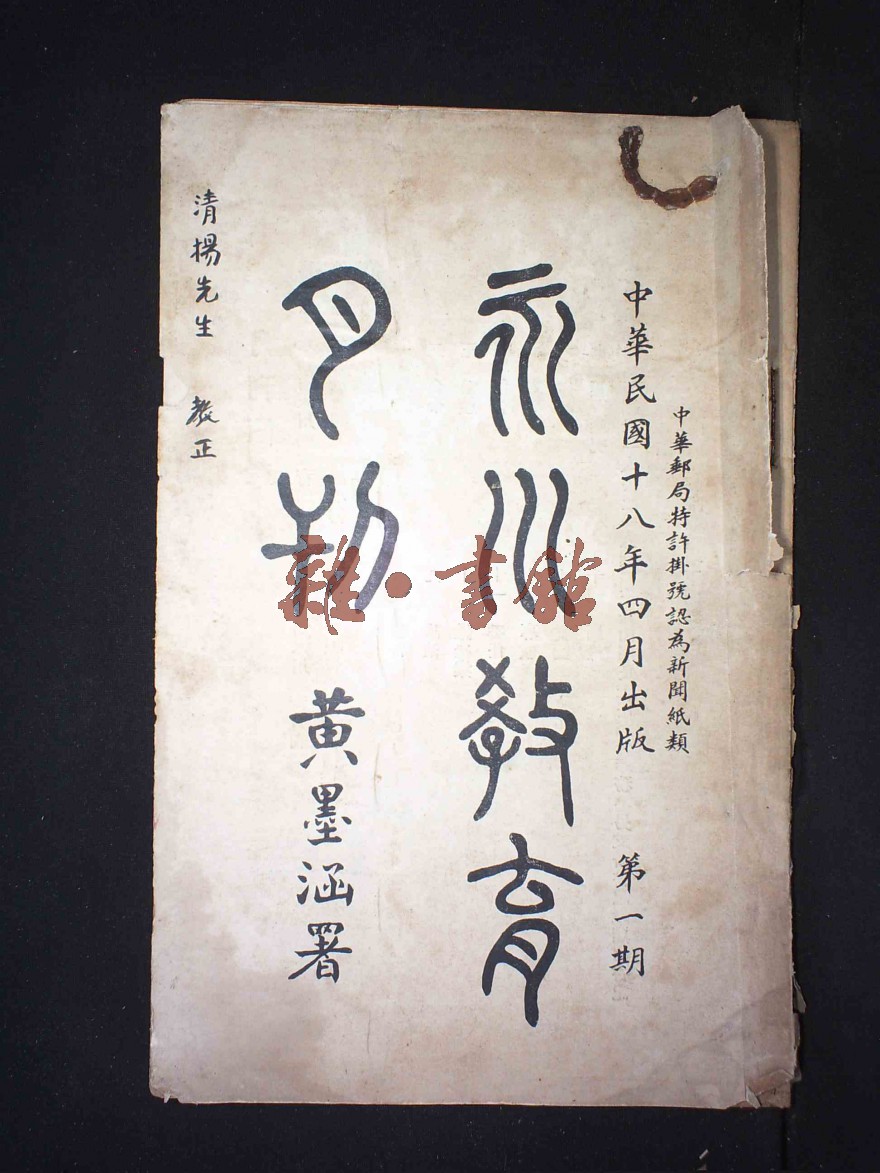 中華郵局特許掛號認為新聞紙類
中華民國十八年四月出版 第一期
永川教育
月刊 黄墨涵署
清揚先生 教正
雜·書館